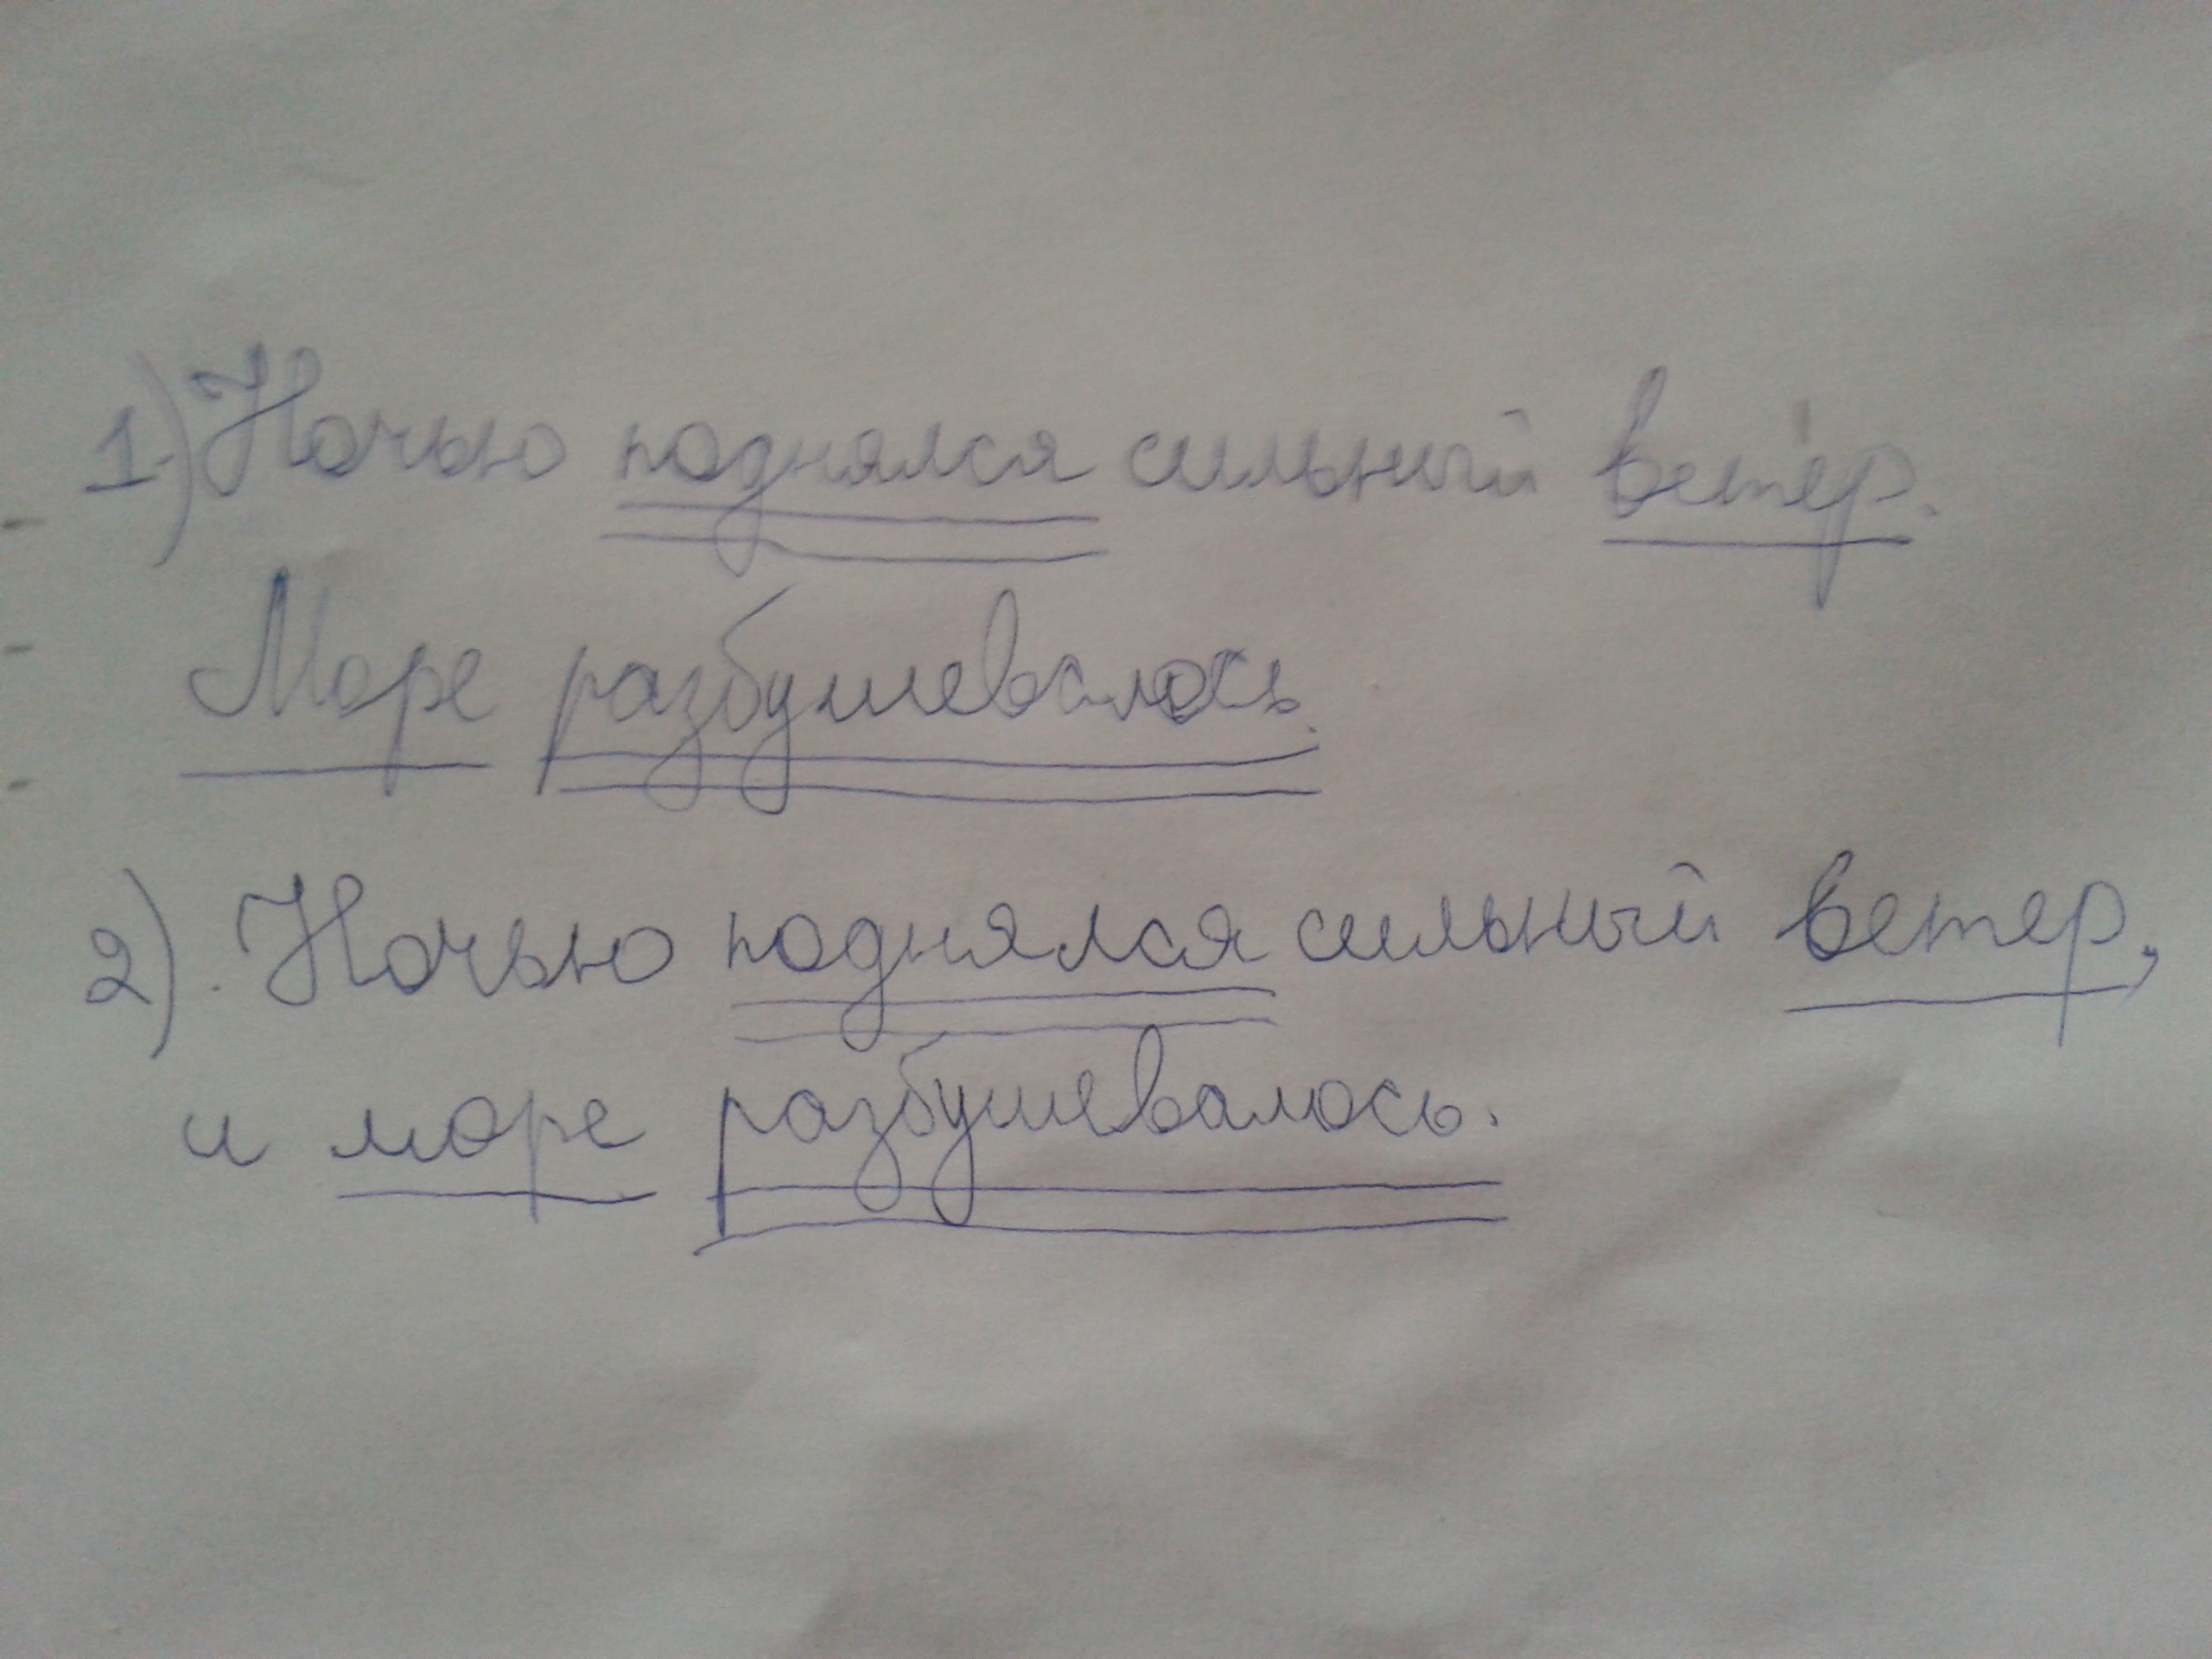 1) Ночью поднялся сильный ветер.
Море разбушевалось.
2). Ночью поднялся сильный ветер,
и море разбушевалось.